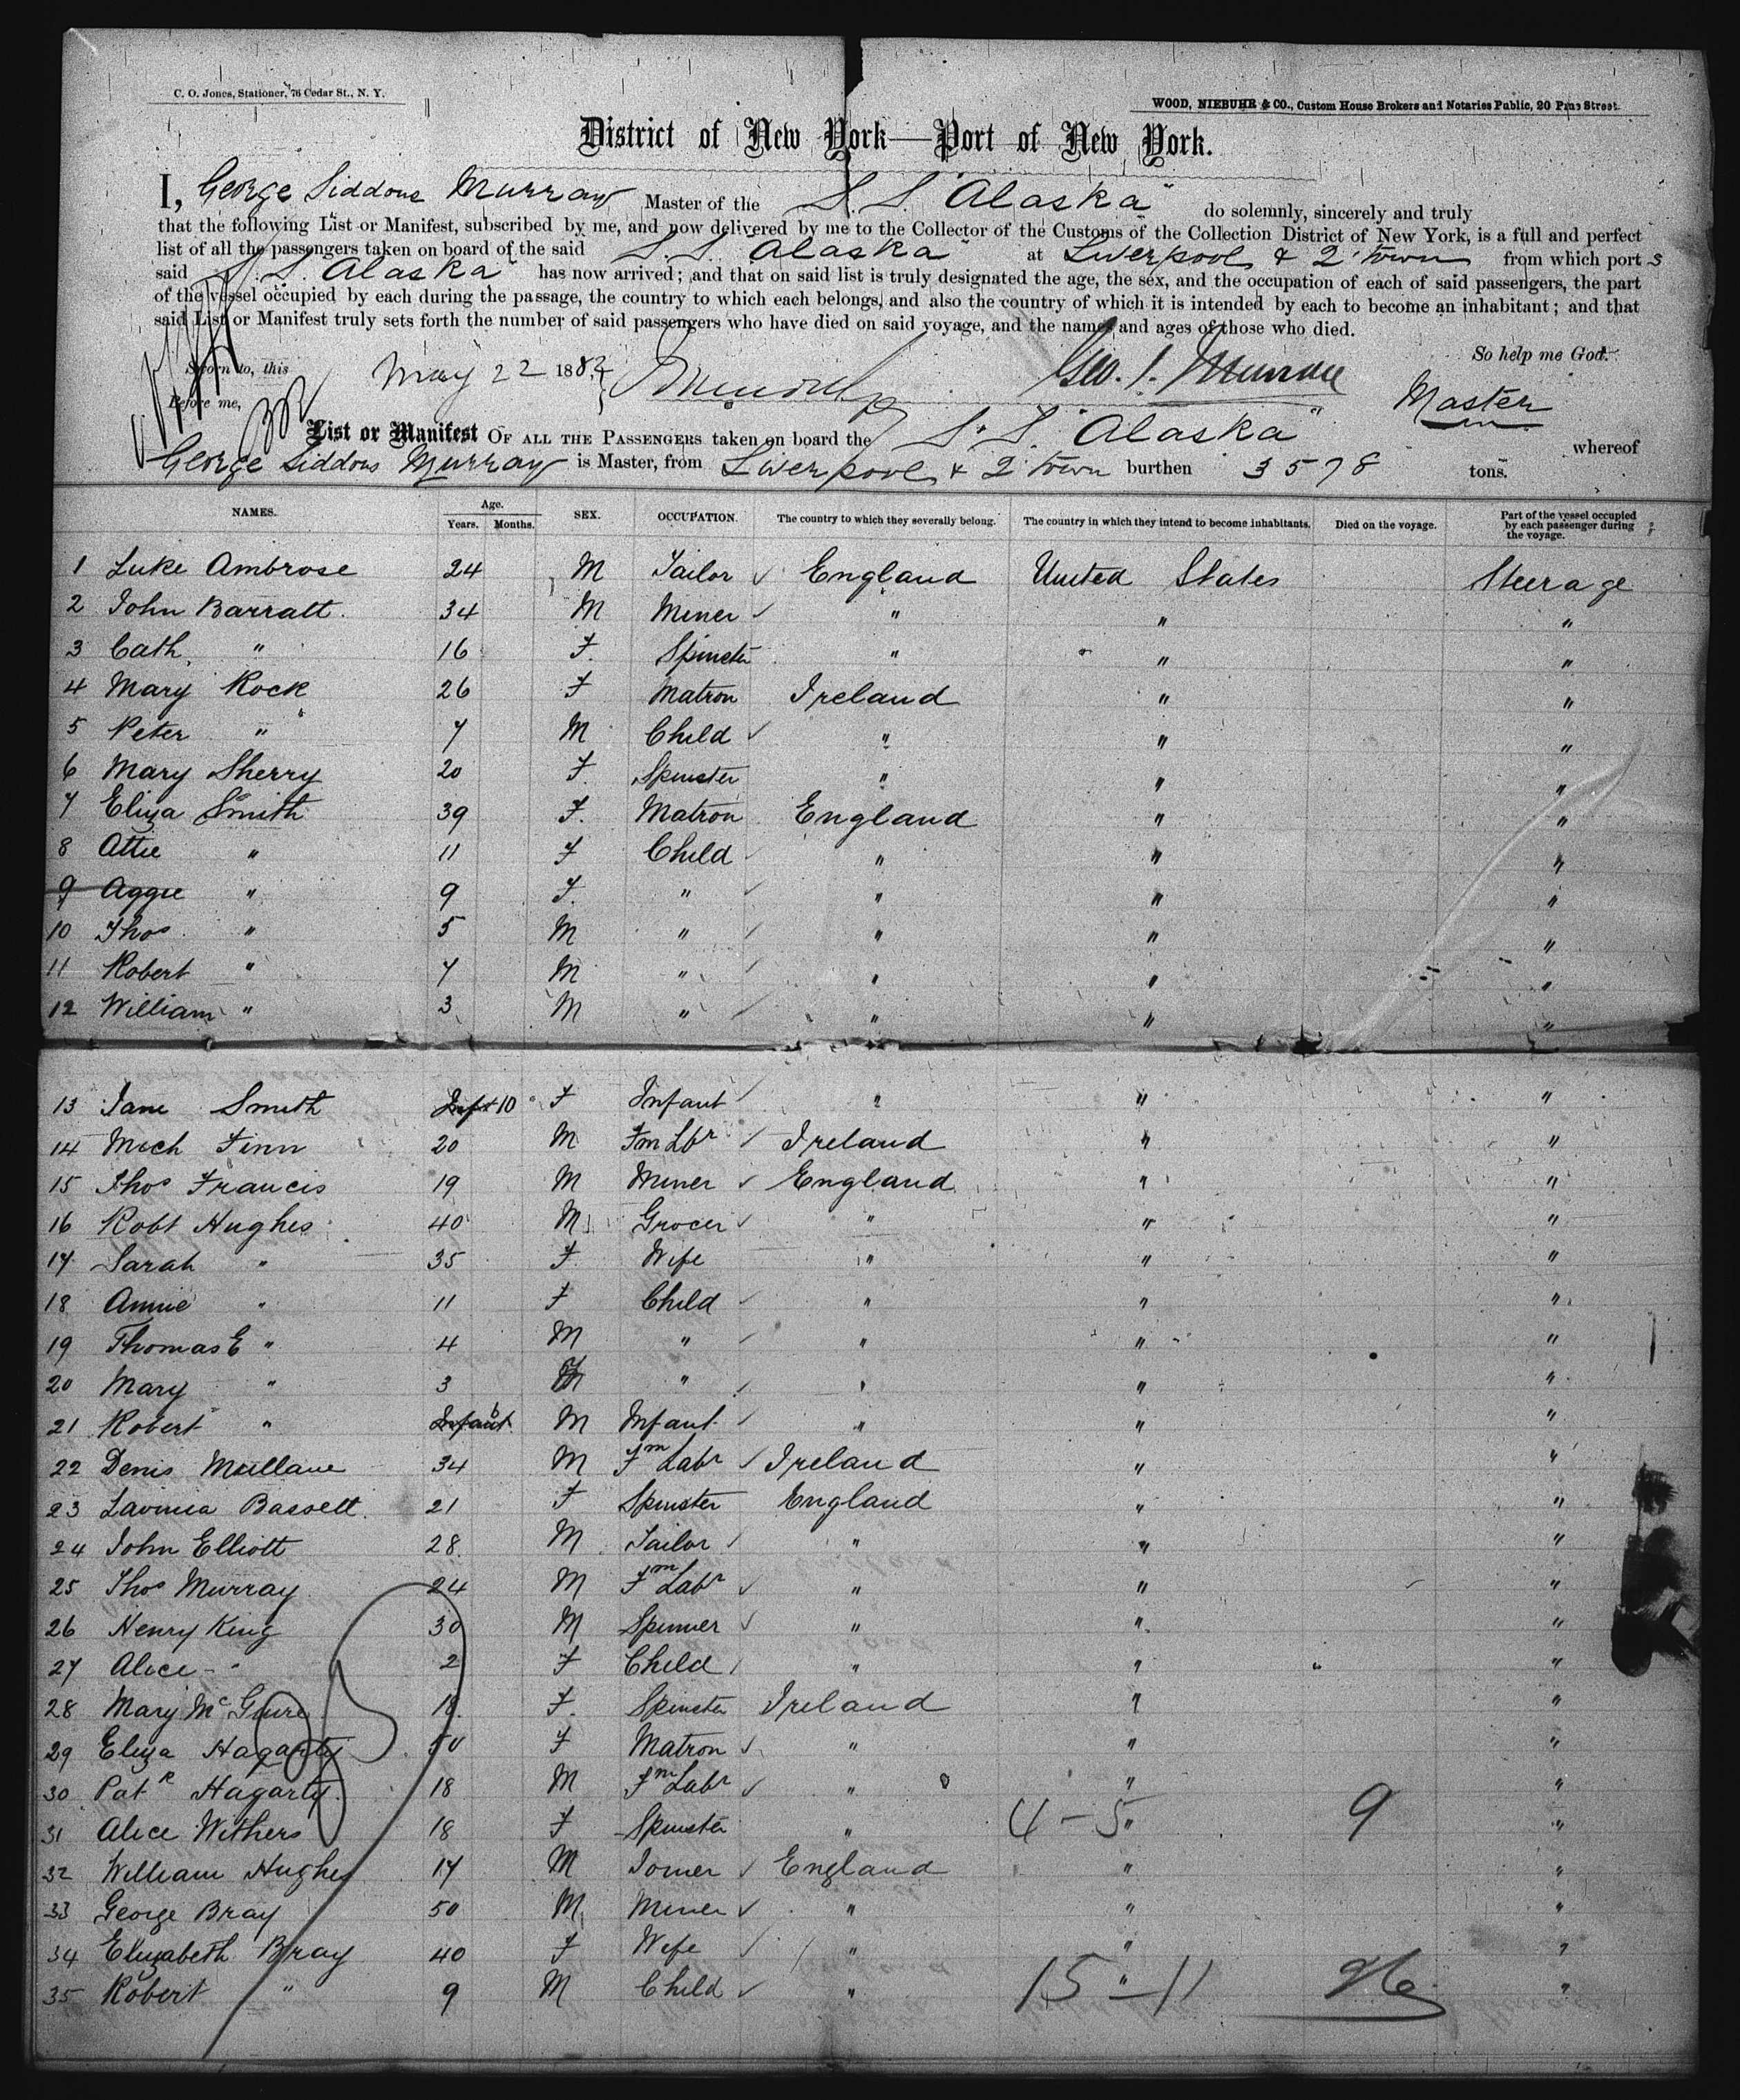 C. O. Jones, Stationer, 76 Cedar St., N. Y.
WOOD, NIEBUHR & CO., Custom House Brokers and Notaries Public, 20 Pine Street.
District of New York—Port of New York.
I, George Siddons Murray Master of the S. S. "Alaska" do solemnly, sincerely and truly
that the following List or Manifest, subscribed by me, and now delivered by me to the Collector of the Customs of the Collection District of New York, is a full and perfect
list of all the passengers taken on board of the said S. S. Alaska" at Liverpool & Q'town from which port s
said S. S. Alaska" has now arrived; and that on said list is truly designated the age, the sex, and the occupation of each of said passengers, the part
of the vessel occupied by each during the passage, the country to which each belongs, and also the country of which it is intended by each to become an inhabitant; and that
said List or Manifest truly sets forth the number of said passengers who have died on said voyage, and the names and ages of those who died.
So help me God.
Sworn to, this May 22 188 Geo. S. Murray Master
Before me,
List or Manifest OF ALL THE PASSENGERS taken on board the S. S. "Alaska" whereof
George Siddons Murray is Master, from Liverpool & Q'town burthen 3578 tons.
NAMES. Age. Years. Months. SEX. OCCUPATION. The country to which they severally belong. The country in which they intend to become inhabitants. Died on the voyage. Part of the vessel occupied by each passenger during the voyage.
1 Luke Ambrose 24 M Tailor England United States Steerage
2 John Barratt 34 M Miner " " "
3 Cath " 16 F. Spinster " " "
4 Mary Rock 26 F Matron Ireland " "
5 Peter " 7 M Child " " "
6 Mary Sherry 20 F. Spinster " " "
7 Eliza Smith 39 F. Matron England " "
8 Attie " 11 F Child " " "
9 Aggie " 9 F. " " " "
10 Thos " 5 M " " " "
11 Robert " 7 M " " " "
12 William " 3 M " " " "
13 Jane Smith Inft 10 F Infant " " "
14 Mich Finn 20 M Fm Lbr Ireland " "
15 Thos Francis 19 M Miner England " "
16 Robt Hughes 40 M Grocer " " "
17 Sarah " 35 F Wife " " "
18 Annie " 11 F Child " " "
19 Thomas E " 4 M " " " "
20 Mary " 3 F " " " "
21 Robert " Infant 6 M Infant " " "
22 Denis Mullane 34 M Fm Labr Ireland " "
23 Lavinia Bassett 21 F Spinster England " "
24 John Elliott 28 M Tailor " " "
25 Thos Murray 24 M Fm Labr " " "
26 Henry King 30 M Spinner " " "
27 Alice " 2 F Child " " "
28 Mary McGuire 18 F. Spinster Ireland " "
29 Eliza Hagarty 50 F Matron " " "
30 Patk Hagarty 18 M Fm Labr " " "
31 Alice Withers 18 F Spinster " " "
4 - 5 9
32 William Hughes 17 M Joiner England " "
33 George Bray 50 M Miner " " "
34 Elizabeth Bray 40 F Wife " " "
35 Robert " 9 M Child " " "
15 - 11 26